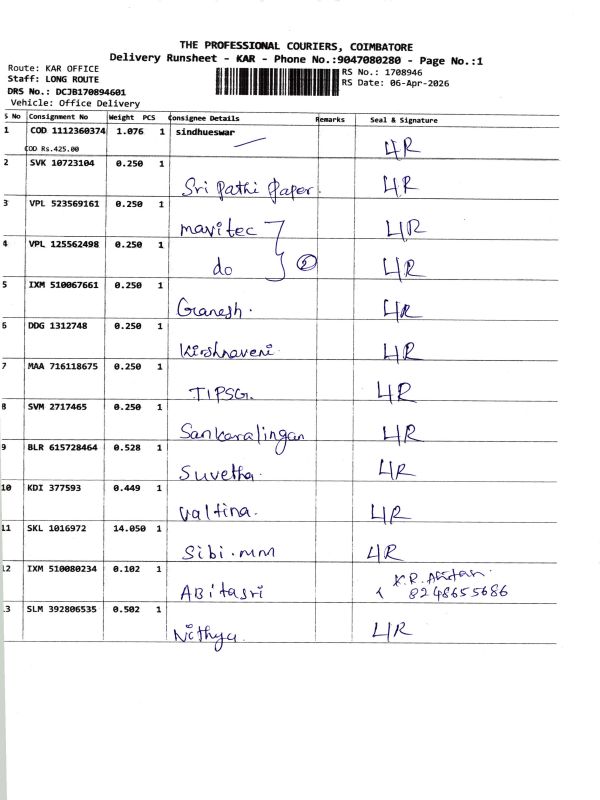 THE PROFESSIONAL COURIERS, COIMBATORE
Delivery Runsheet - KAR - Phone No.:9047080280 - Page No.:1
Route: KAR OFFICE
Staff: LONG ROUTE
DRS No.: DCJB170894601
Vehicle: Office Delivery
RS No.: 1708946
RS Date: 06-Apr-2026
S No Consignment No Weight PCS Consignee Details Remarks Seal & Signature
1 COD 1112360374 1.076 1 sindhueswar 4R
COD Rs.425.00
2 SVK 10723104 0.250 1 Sri Pathi Paper. 4R
3 VPL 523569161 0.250 1 mavitec 4R
4 VPL 125562498 0.250 1 do 2 4R
5 IXM 510067661 0.250 1 Ganesh. 4R
6 DDG 1312748 0.250 1 Kirshnaveni. 4R
7 MAA 716118675 0.250 1 TIPSG. 4R
8 SVM 2717465 0.250 1 Sankaralingan 4R
9 BLR 615728464 0.528 1 Suvetha. 4R
10 KDI 377593 0.449 1 Valtina. 4R
11 SKL 1016972 14.050 1 Sibi.mm 4R
12 IXM 510080234 0.102 1 ABitasri K.R. 8248655686
13 SLM 392806535 0.502 1 Nithya. 4R